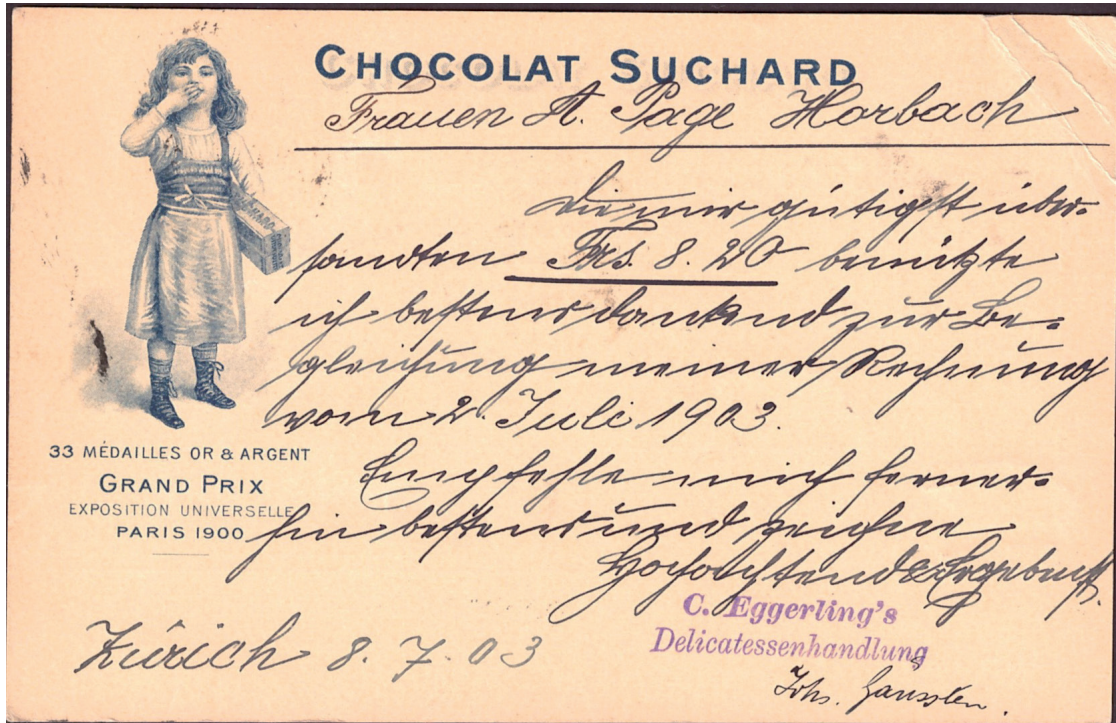 CHOCOLAT SUCHARD
Frauen A. Page Horbach
Die mir gütigst über-
sandten Frs. 8.20 benützte
ich bestens dankend zur Be-
gleichung meiner Rechnung
vom 2. Juli 1903.
Empfehle mich ferner-
hin bestens und zeichne
Hochachtend & Ergebenst.
C. Eggerling's
Delicatessenhandlung
Johs.
Zürich 8. 7. 03
33 MÉDAILLES OR & ARGENT
GRAND PRIX
EXPOSITION UNIVERSELLE
PARIS 1900